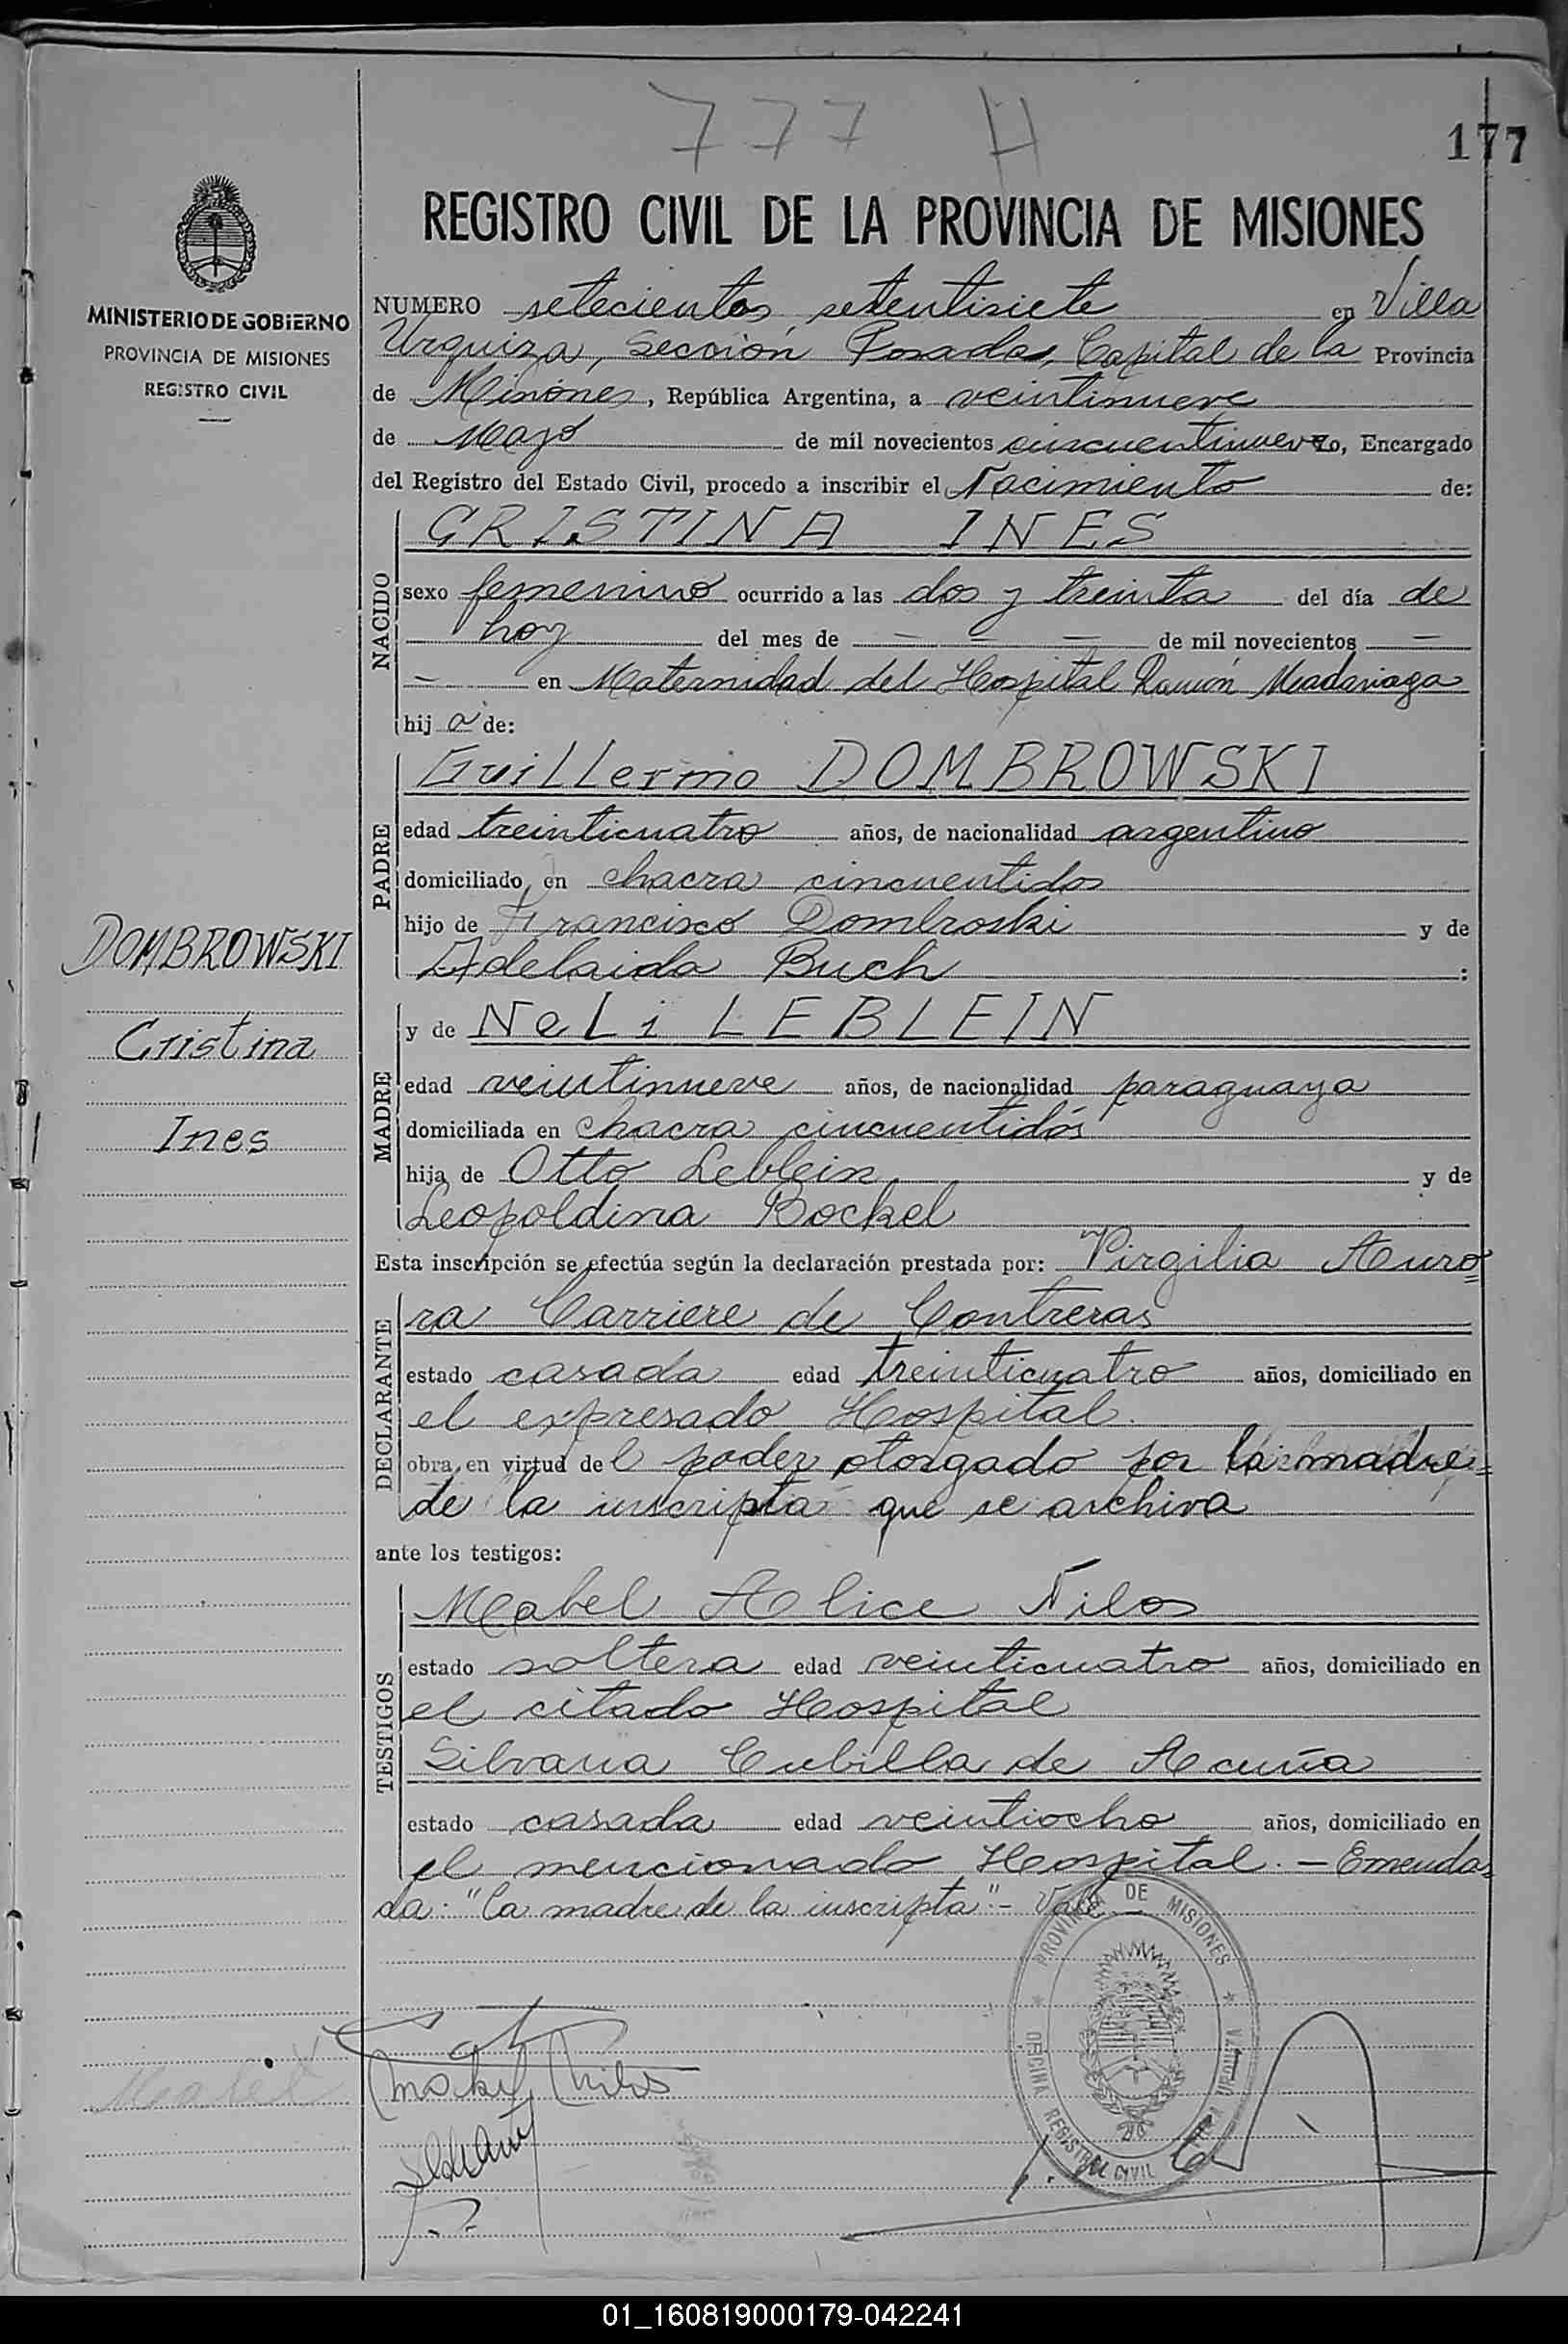 777 H
177
MINISTERIO DE GOBIERNO
PROVINCIA DE MISIONES
REGISTRO CIVIL
REGISTRO CIVIL DE LA PROVINCIA DE MISIONES
NUMERO setecientos setentisiete en Villa
Urquiza, Sección Posadas, Capital de la Provincia
de Misiones, República Argentina, a veintinueve
de Mayo de mil novecientos cincuentinueve yo, Encargado
del Registro del Estado Civil, procedo a inscribir el Nacimiento de:
NACIDO
CRISTINA INES
sexo femenino ocurrido a las dos y treinta del día de
hoy del mes de — — — de mil novecientos —
— en Maternidad del Hospital Ramón Madariaga
hij a de:
PADRE
Guillermo DOMBROWSKI
edad treinticuatro años, de nacionalidad argentino
domiciliado en chacra cincuentidos
hijo de Francisco Dombroski y de
Adelaida Buch :
DOMBROWSKI
Cristina
Ines
MADRE
y de NeLi LEBLEIN
edad veintinueve años, de nacionalidad paraguaya
domiciliada en chacra cincuentidós
hija de Otto Leblein y de
Leopoldina Bockel
Esta inscripción se efectúa según la declaración prestada por: Virgilia Auro=
DECLARANTE
ra Carriere de Contreras
estado casada edad treinticuatro años, domiciliado en
el expresado Hospital.
obra, en virtud del poder otorgado por la madre=
de la inscripta que se archiva
ante los testigos:
TESTIGOS
Mabel Alice Nilos
estado soltera edad veinticuatro años, domiciliado en
el citado Hospital
Silvana Cubilla de Acuña
estado casada edad veintiocho años, domiciliado en
el mencionado Hospital. — Emenda=
da: "la madre de la inscripta" - Vale.
PROVINCIA DE MISIONES
OFICINA REGISTRO CIVIL
VILLA URQUIZA
Mabel
01_160819000179-042241